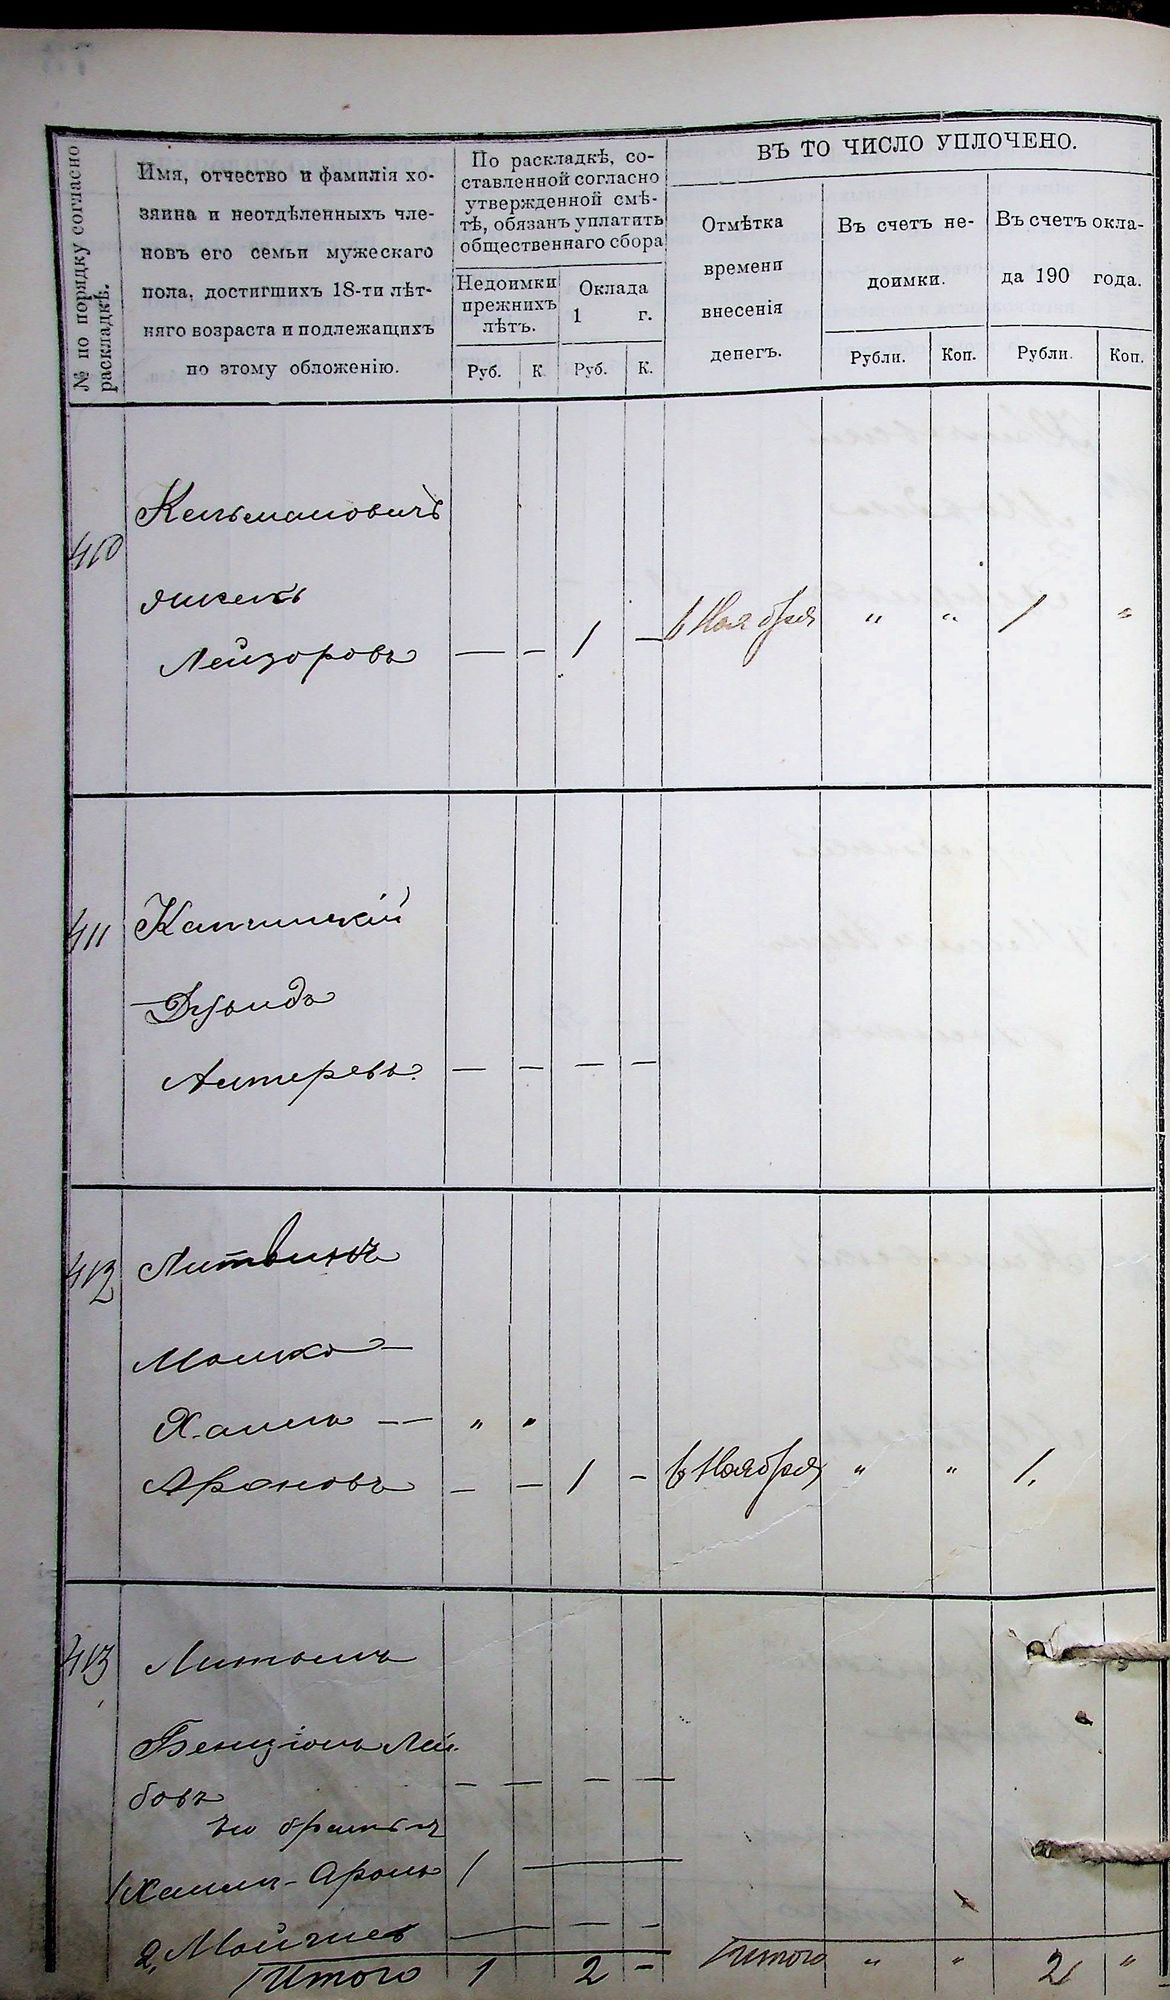 № по порядку согласно
раскладкѣ.
Имя, отчество и фамилія хо-
зяина и неотдѣленныхъ чле-
новъ его семьи мужескаго
пола, достигшихъ 18-ти лѣт-
няго возраста и подлежащихъ
по этому обложенію.
По раскладкѣ, со-
ставленной согласно
утвержденной смѣ-
тѣ, обязанъ уплатить
общественнаго сбора
Недоимки
прежнихъ
лѣтъ.
Оклада
1 г.
Руб. К. Руб. К.
ВЪ ТО ЧИСЛО УПЛОЧЕНО.
Отмѣтка
времени
внесенія
денегъ.
Въ счетъ не-
доимки.
Въ счетъ окла-
да 190 года.
Рубли. Коп. Рубли. Коп.
410 Кельмановичъ
Янкель
Лейзоровъ — — 1 — 6 Ноября " " 1 "
411 Капчинскій
Дувидъ
Алтеревъ. — — — —
412 Литвинъ
Мошко —
Хаимъ — " "
Ароновъ — — 1 — 6 Ноября " " 1.
413 Литвинъ
Бенціонъ Лей-
бовъ — — — —
его братья
1 Хаимъ-Аронъ 1 —
2, — — —
Итого 1 2 — Итого " " 2 "